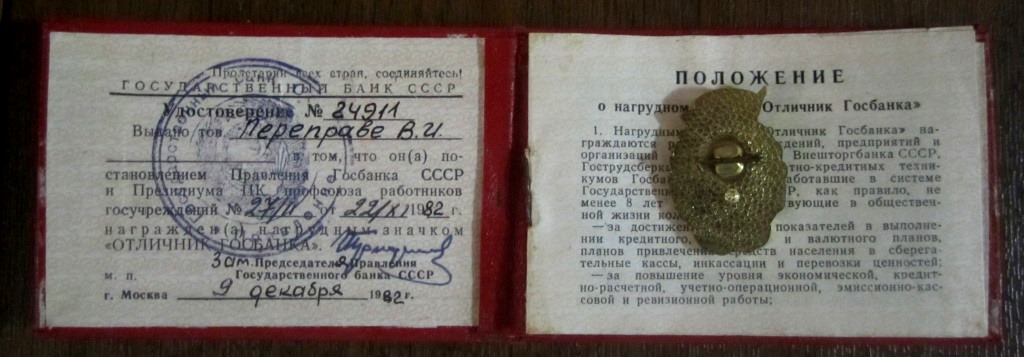 Пролетарии всех стран, соединяйтесь!
ГОСУДАРСТВЕННЫЙ БАНК СССР
Удостоверение № 24911
Выдано тов. Переправе В.И.
в том, что он(а) по-
становлением Правления Госбанка СССР
и Президиума ЦК профсоюза работников
госучреждений № 27/11 от 22/XI 1982 г.
награжден(а) нагрудным значком
«ОТЛИЧНИК ГОСБАНКА».
Зам. Председателя Правления
м. п. Государственного банка СССР
г. Москва 9 декабря 1982 г.
ПОЛОЖЕНИЕ
о нагрудном Отличник Госбанка»
1. Нагрудным Отличник Госбанка» на-
граждаются дений, предприятий и
организаций Внешторгбанка СССР,
Гострудсберк тно-кредитных техни-
кумов Госба аботавшие в системе
Государствен Р, как правило, не
менее 8 лет твующие в обществен-
ной жизни кол
—за достижен показателей в выполне-
нии кредитного, и валютного планов,
планов привлечения средств населения в сберега-
тельные кассы, инкассации и перевозки ценностей;
—за повышение уровня экономической, кредит-
но-расчетной, учетно-операционной, эмиссионно-кас-
совой и ревизионной работы;